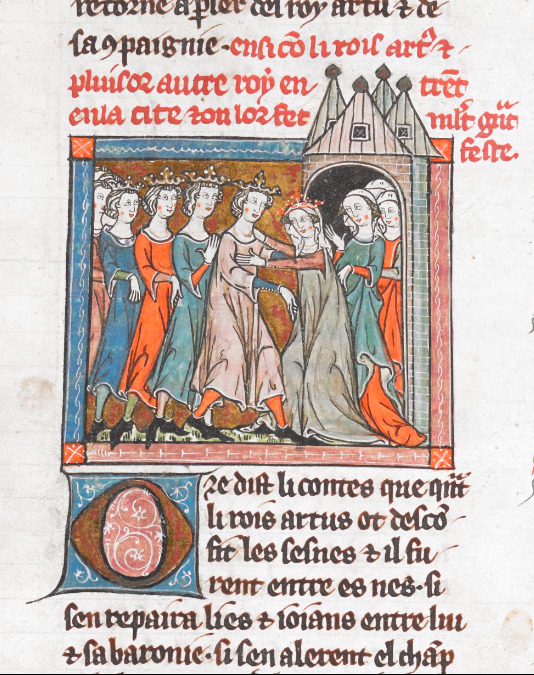 retorne a parler del roy artu ⁊ de
sa ꝯpaignie · ensi cō li rois artꝰ ⁊
pluisor autre roy en trēt
en la cite ⁊ on lor fet mlt̄ gͣnt
feste.
Ore dist li contes que qͣnt
li rois artus ot desco̅
fit les sesnes ⁊ il fu
rent entre es nes · si
sen repaira lies ⁊ ioians entre lui
⁊ sa baronie · si sen alerent el chāp